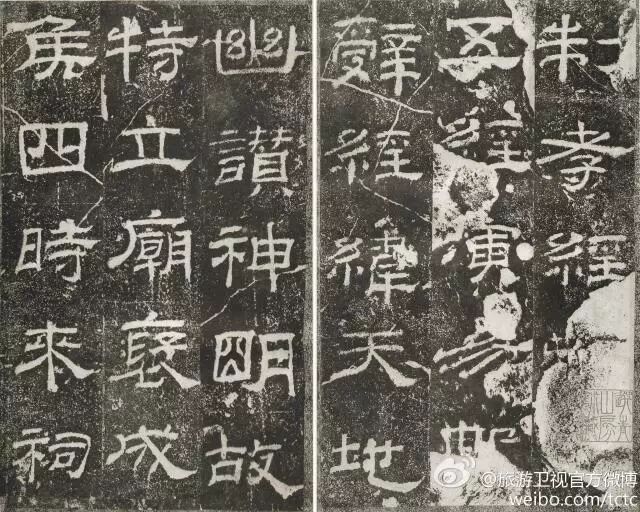 制孝經
五經演易繫
辭經緯天地
幽讚神明故
特立廟褒成
侯四時來祠
@旅游卫视官方微博
weibo.com/tctc